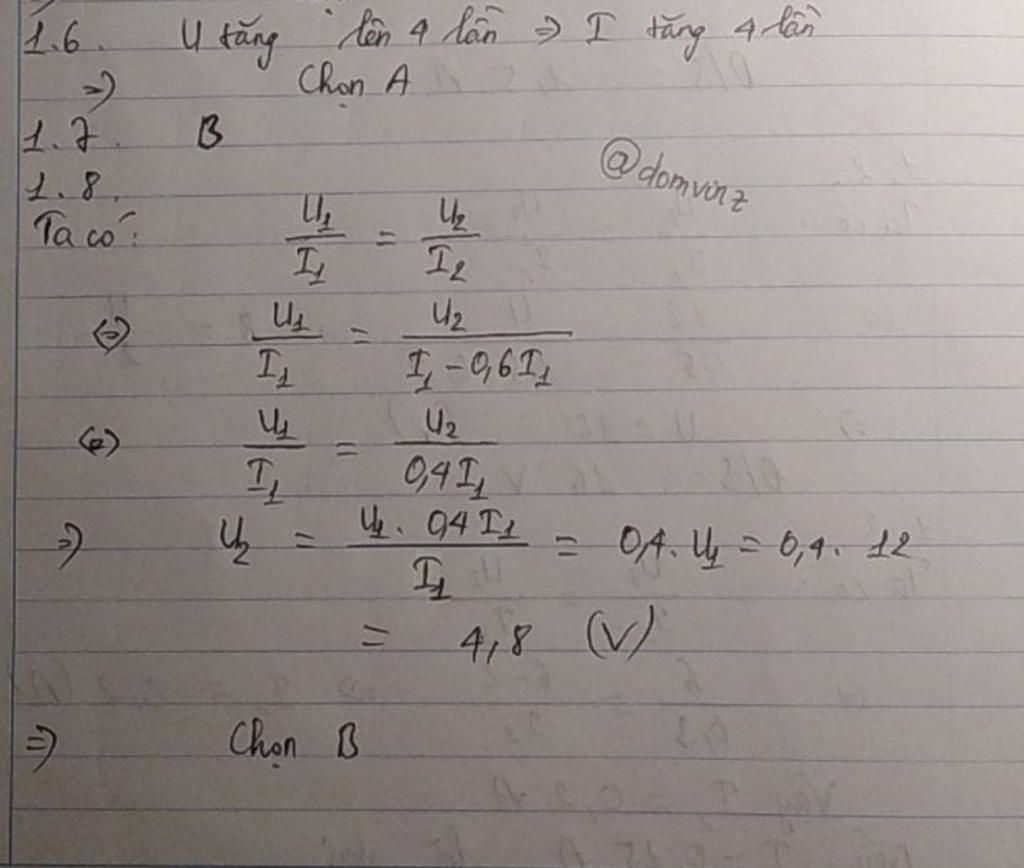 1.6. U tăng lên 4 lần => I tăng 4 lần
=> Chọn A
1.7. B
@domvinz
1.8.
Ta có: U1/I1 = U2/I2
<=> U1/I1 = U2/(I1 - 0,6I1)
<=> U1/I1 = U2/(0,4I1)
=> U2 = (U1. 0,4I1)/I1 = 0,4. U1 = 0,4. 12
= 4,8 (V)
=> Chọn B